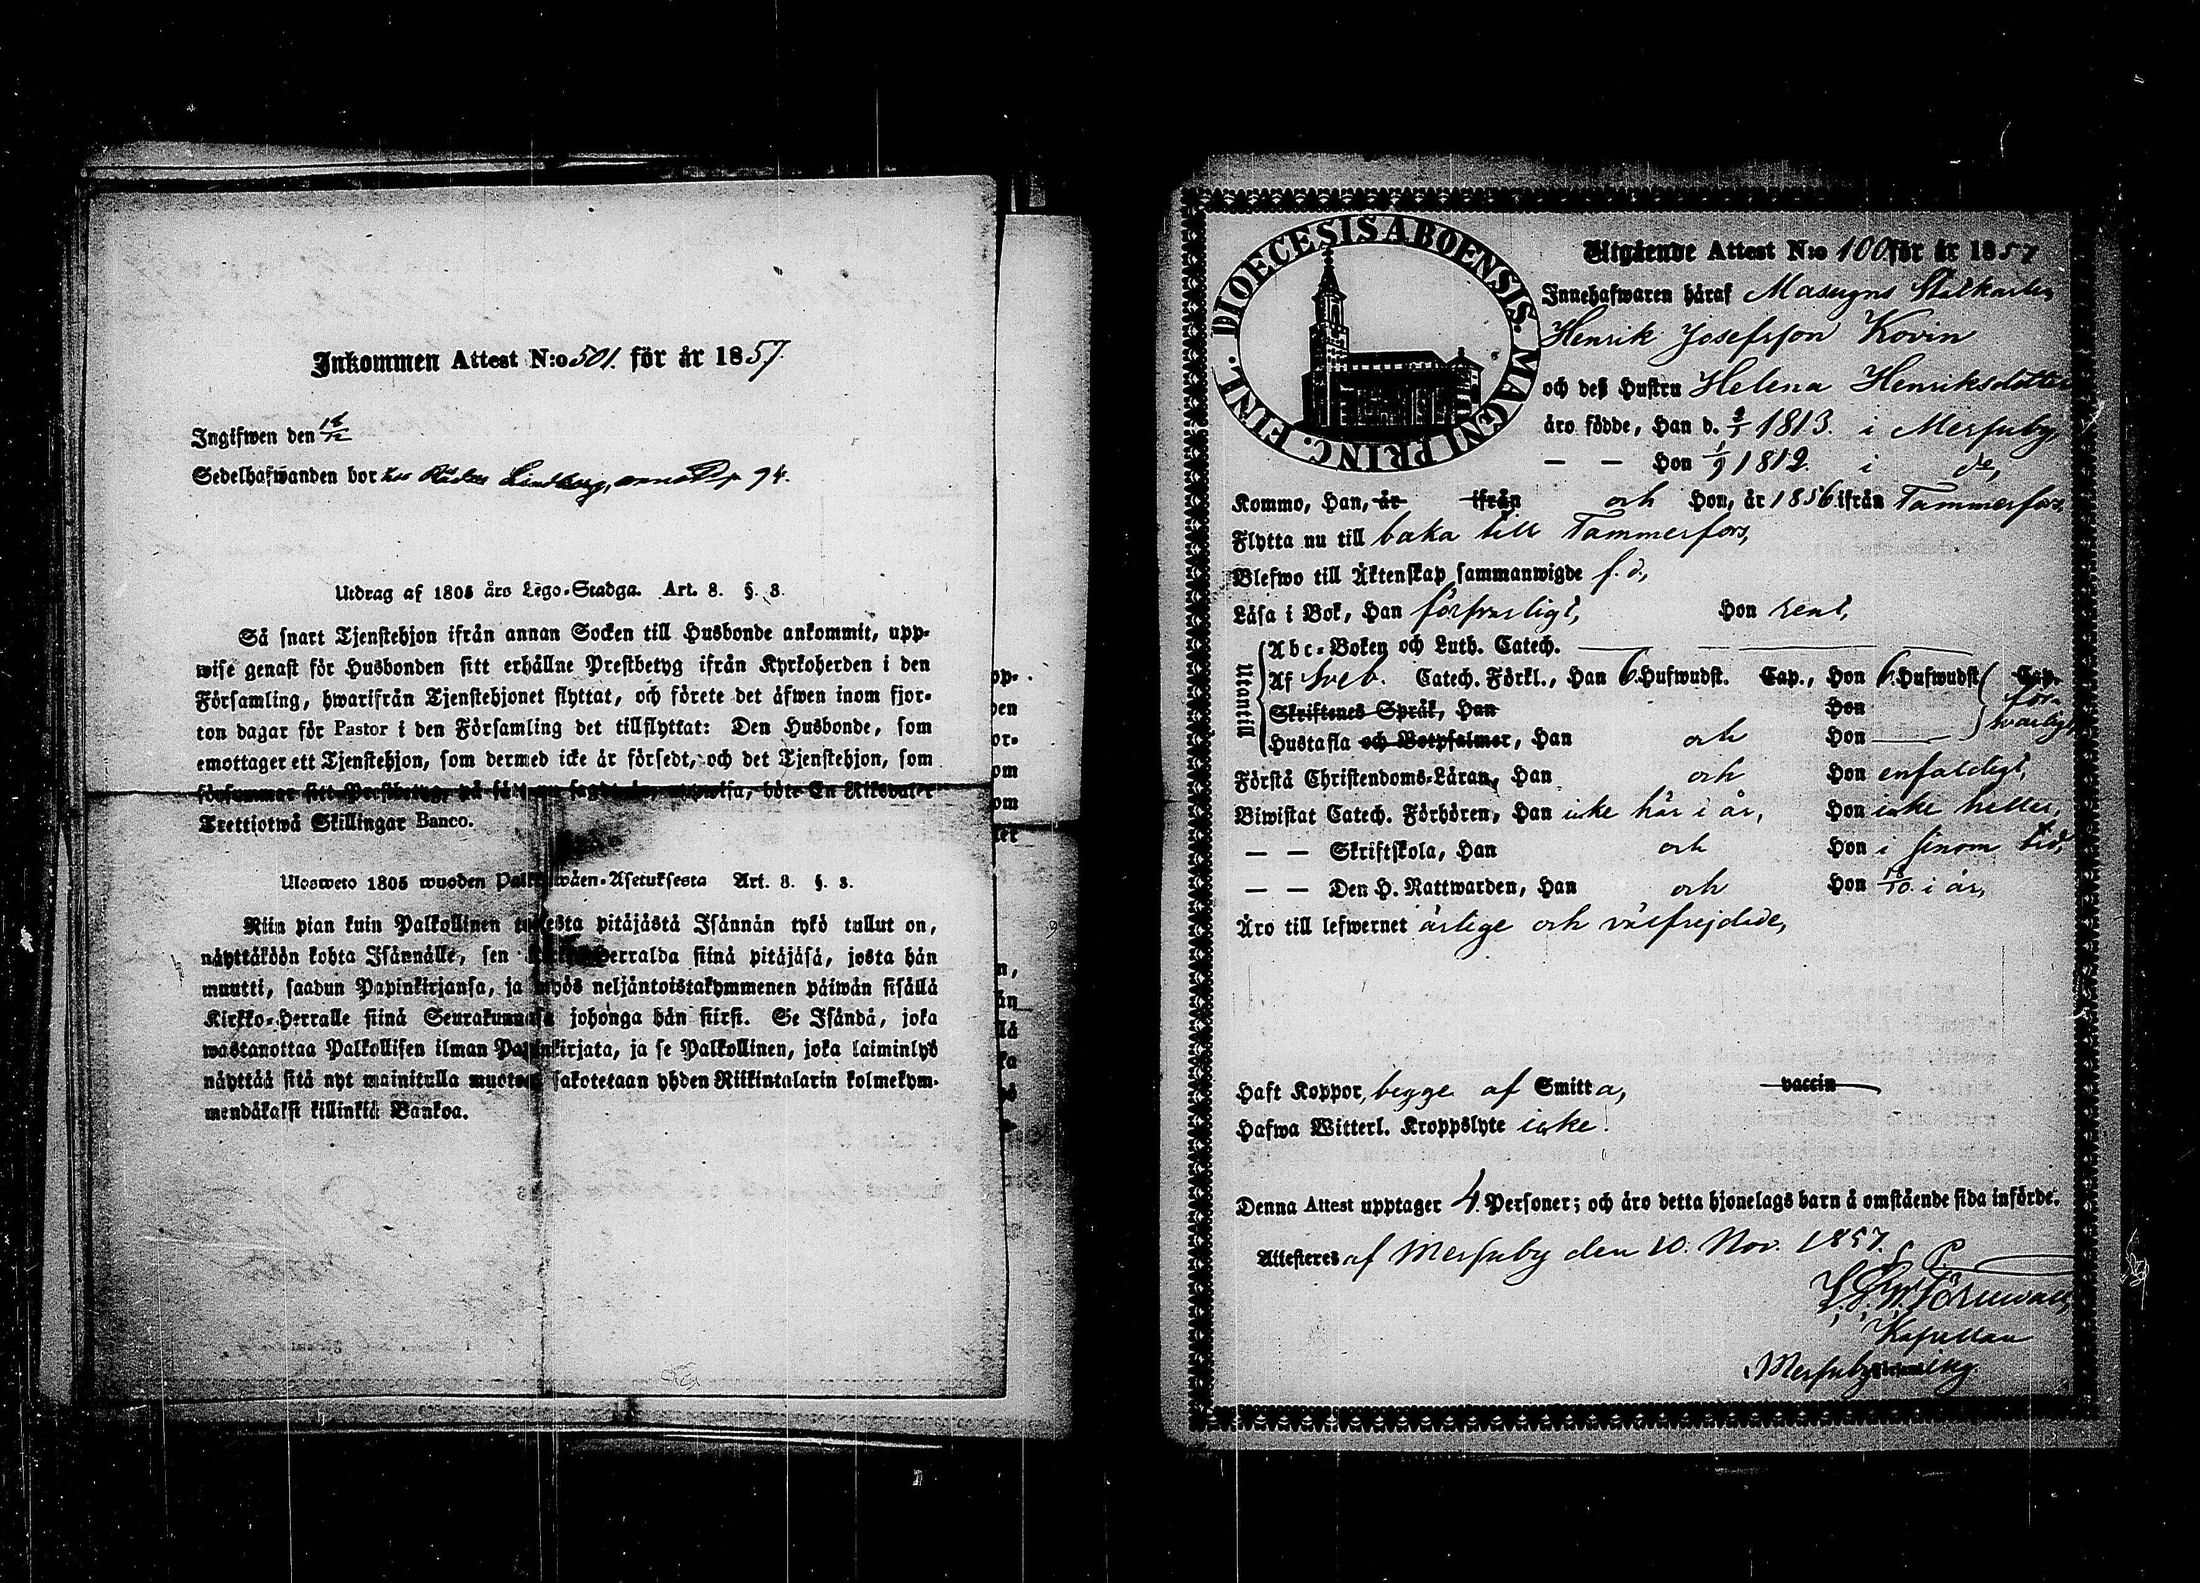 Inkommen Attest N:o 501. för år 1857.
Ingifwen den 18/12
Sedelhafwanden bor hos Lindberg, 94.
Utdrag af 1805 års Lego-Stadga. Art. 8. §. 3.
Så snart Tjenstehjon ifrån annan Socken till Husbonde ankommit, upp-
wise genast för Husbonden sitt erhållne Prestbetyg ifrån Kyrkoherden i den
Församling, hwarifrån Tjenstehjonet flyttat, och förete det äfwen inom fjor-
ton dagar för Pastor i den Församling det tillflyttat: Den Husbonde, som
emottager ett Tjenstehjon, som dermed icke är försedt, och det Tjenstehjon, som
försummar sitt Prestbetyg, på sätt nu sagt är, uppwisa, böte En Riksdaler
Trettiotwå Skillingar Banco.
Ulosweto 1805 wuoden Art. 8. §. 3.
Niin pian kuin Palkollinen pitäjästä Isännän tykö tullut on,
näyttäköön kohta Isännälle, sen Herralda siinä pitäjäsä, josta hän
muutti, saadun Papinkirjansa, ja myös neljäntoistakymmenen päiwän sisällä
Kirkko-Herralle siinä Seurakunnasa johonga hän siirsi. Se Isändä, joka
wastanottaa Palkollisen ilman Papinkirjata, ja se Palkollinen, joka laiminlyö
näyttää sitä nyt mainitulla muoto sakotetaan yhden Riikintalarin kolmekym-
mendäkaksi killinkiä Bankoa.
DIOECESIS ABOENSIS. MAGNI PRINC. FINL.
Utgående Attest N:o 100 för år 1857
Innehafwaren häraf Masugns Stalkarlen
Henrik Josefsson Kovin
och deß Hustru Helena Henriksdotter
äro födde, Han d. 2/7 1813. i Mersuby,
— — Hon 1/9 1812. i do,
Kommo, Han, år ifrån och Hon, år 1856 ifrån Tammerfors,
Flytta nu till baka till Tammerfors,
Blefwo till Äktenskap sammanwigde f. d.,
Läsa i Bok, Han försvarligt, Hon rent,
Utantill
Abc-Boken och Luth. Catech. — — —
Af Sveb. Catech. Förkl., Han 6. Hufwudst. Cap., Hon 6. Hufwudst. Cap.
Skriftenes Språk, Han Hon för-
svarligt,
Hustafla och Botpsalmer, Han och Hon —
Förstå Christendoms-Läran, Han och Hon enfaldigt,
Biwistat Catech. Förhören, Han icke här i år, Hon icke heller,
— — Skriftskola, Han och Hon i sinom tid,
— — Den H. Nattwarden, Han och Hon 18/10 i år,
Äro till lefwernet ärlige och välfrejdade,
Haft Koppor, begge af Smitta, vaccin
Hafwa Witterl. Kroppslyte icke.
Denna Attest upptager 4. Personer; och äro detta hjonelags barn å omstående sida införde.
Attesteres af Mersuby den 10. Nov. 1857.
Kapellan